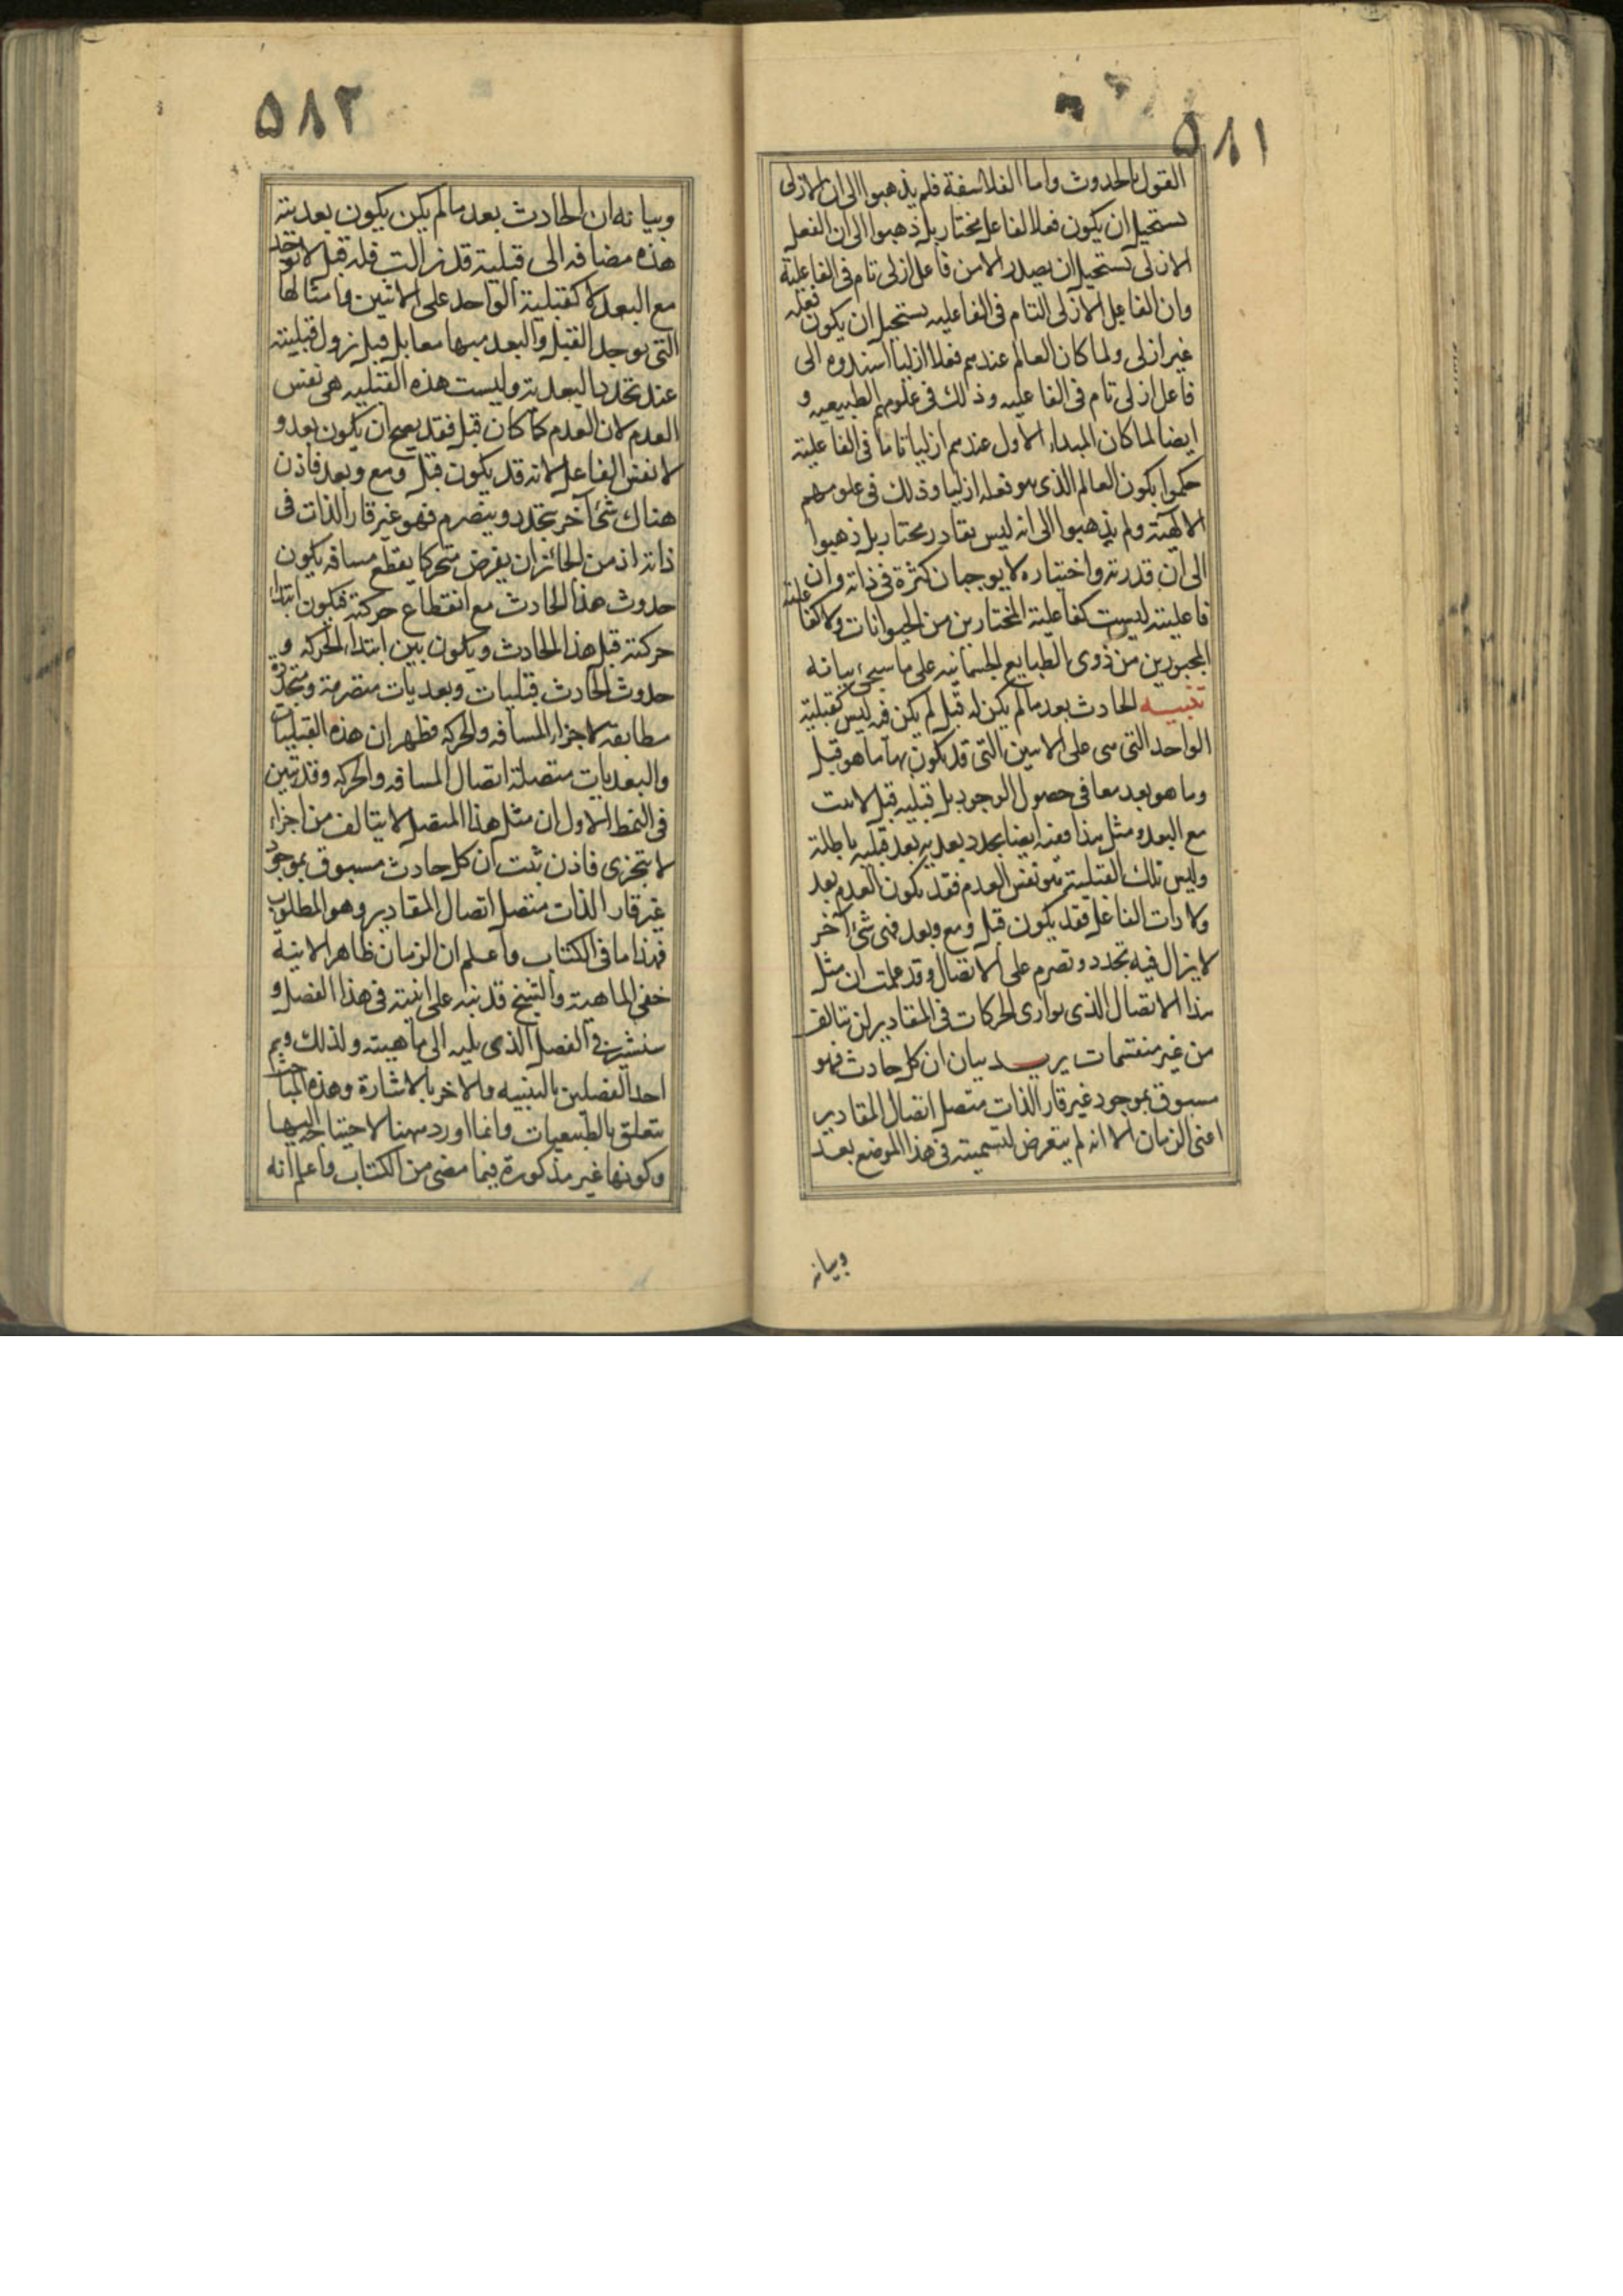 ٥٨١
القول بالحدوث واما الفلاسفة فلم يذهبوا الى ان الازلى
يستحيل ان يكون فعلا لفاعل مختار بل ذهبوا الى ان الفعل
الازلى يستحيل ان يصدر الا من فاعل ازلى تام فى الفاعلية
وان الفاعل الازلى التام فى الفاعليه يستحيل ان يكون فعله
غير ازلى ولما كان العالم عندهم فعلا ازليا اسندوه الى
فاعل ازلى تام فى الفاعليه وذلك فى علومهم الطبيعيه و
ايضا لما كان المبداء الاول عندهم ازليا تاما فى الفاعلية
حكموا بكون العالم الذى هو فعله ازليا وذلك فى علومهم
الالهية ولم يذهبوا الى انه ليس بقادر مختار بل ذهبوا
الى ان قدرته واختياره لا يوجبان كثرة فى ذاته وان
فاعليته ليست كفاعلية المختارين من الحيوانات ولا كفاعلية
المجبورين من ذوى الطبايع الجسمانيه على ما سيجئ بيانه
تنبيه الحادث بعد ما لم يكن له قبل لم يكن فيه ليس كقبلية
الواحد التى هى على الاثنين التى قد يكون بها ما هو قبل
وما هو بعد معا فى حصول الوجود بل قبليه قبل لا يثبت
مع البعد ومثل هذا ففيه ايضا تجدد بعديه بعد قبليه باطلة
وليس تلك القبلية هو نفس العدم فقد يكون العدم بعد
ولا ذات الفاعل فقد يكون قبل ومع وبعد فهى شئ آخر
لا يزال فيه تجدد وتصرم على الاتصال وقد علمت ان مثل
هذا الاتصال الذى يوازى الحركات فى المقادير لن يتالف
من غير منقسمات يريد بيان ان كل حادث فهو
مسبوق بموجود غير قار الذات متصل اتصال المقادير
اعنى الزمان الا انه لم يتعرض لتسميته فى هذا الموضع بعد
وبيانه
٥٨٢
وبيانه ان الحادث بعد ما لم يكن يكون بعديته
هذه مضافه الى قبلية قد زالت فله قبل لا يوجد
مع البعد لا كقبلية الواحد على الاثنين وامثالها
التى يوجد القبل والبعد فيها معا بل قبل يزول قبليته
عند تجدد البعدية وليست هذه القبليه هى نفس
العدم لان العدم كما كان قبل فقد يصح ان يكون بعد و
لا نفس الفاعل لانه قد يكون قبل ومع وبعد فاذن
هناك شئ آخر يتجدد ويتصرم فهو غير قار الذات فى
ذاته اذ من الجائز ان يفرض متحركا يقطع مسافه يكون
حدوث هذا الحادث مع انقطاع حركته فيكون ابتداء
حركته قبل هذا الحادث ويكون بين ابتداء الحركه و
حدوث الحادث قبليات وبعديات متصرمة ومتجددة
مطابقه لاجزاء المسافه والحركه فظهر ان هذه القبليات
والبعديات متصلة اتصال المسافه والحركه وقد تبين
فى النمط الاول ان مثل هذا المتصل لا يتالف من اجزاء
لا تتجزى فاذن ثبت ان كل حادث مسبوق بموجود
غير قار الذات متصل اتصال المقادير وهو المطلوب
فهذا ما فى الكتاب واعلم ان الزمان ظاهر الانية
خفى الماهية والشيخ قد نبه على انيته فى هذا الفصل و
سنشير فى الفصل الذى يليه الى ماهيته ولذلك وسم
احد الفصلين بالتنبيه والاخر بالاشارة وهذه المباحث
تتعلق بالطبيعيات وانما اورد ههنا لاحتياجه اليها
وكونها غير مذكورة فيما مضى من الكتاب واعلم انه